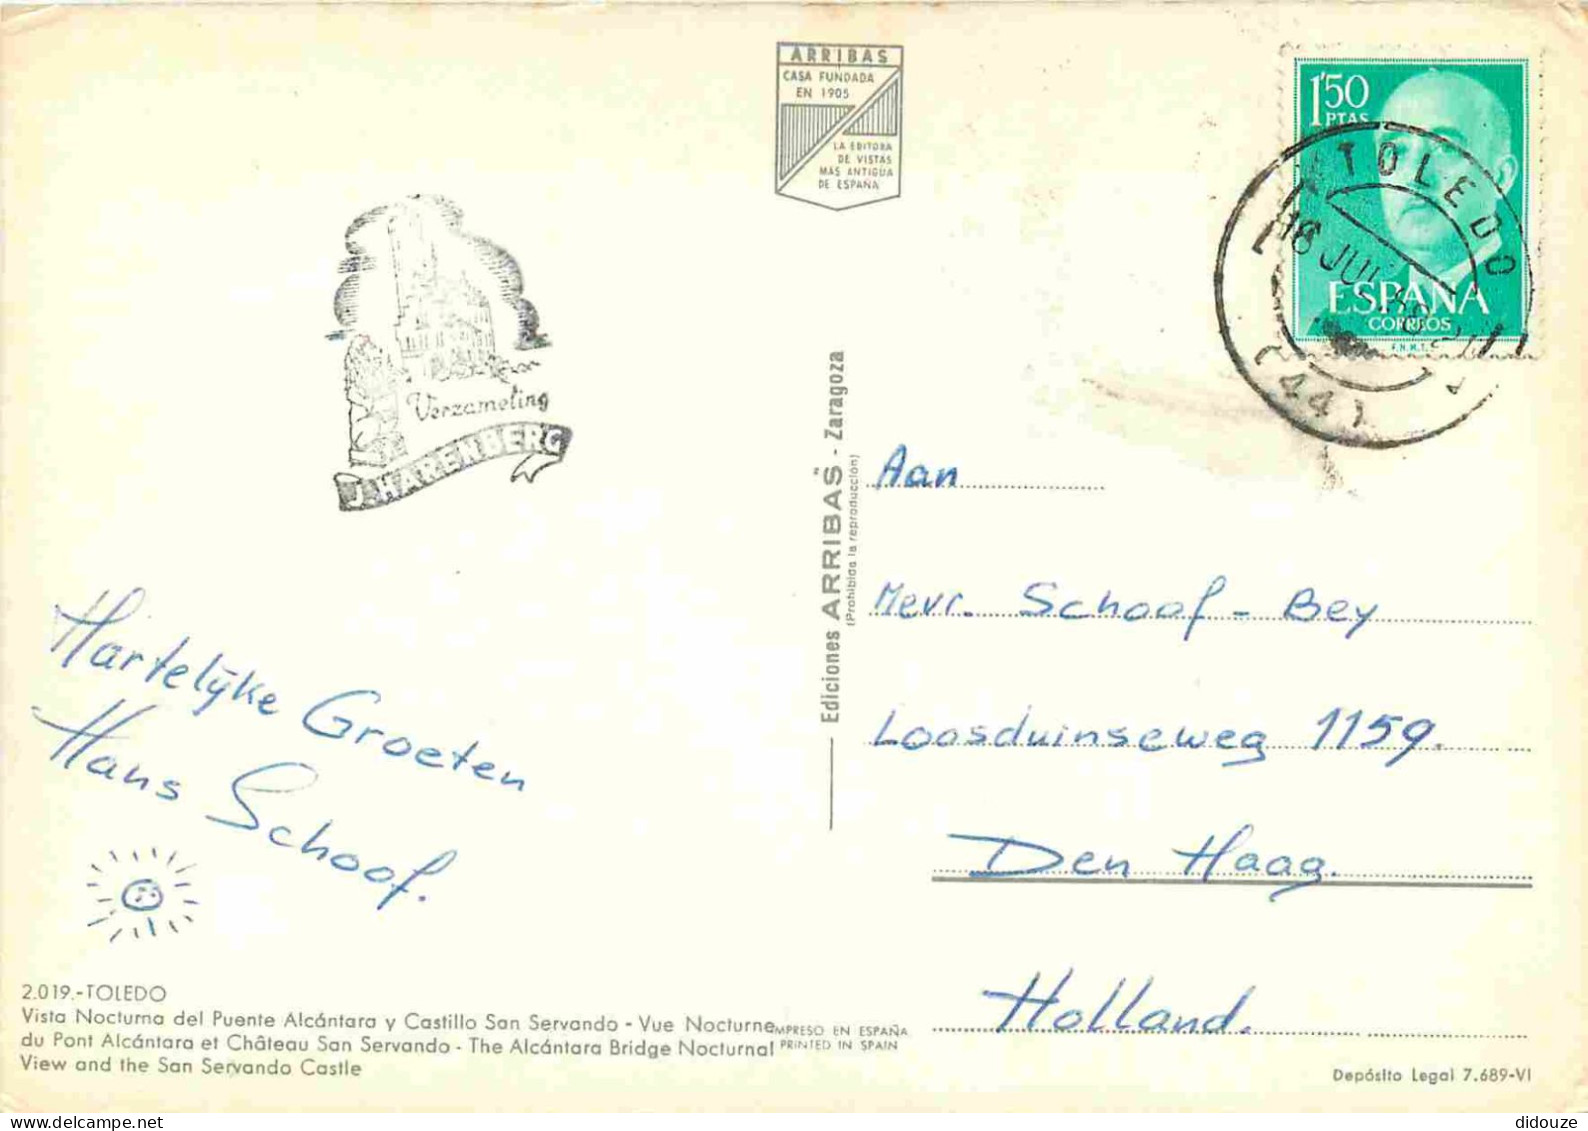 ARRIBAS
CASA FUNDADA
EN 1905
LA EDITORA
DE VISTAS
MAS ANTIGUA
DE ESPAÑA
1'50
PTAS
ESPAÑA
CORREOS
F.N.M.T.
TOLEDO
18 JUL
(44)
Verzameling
J. HARENBERG
Ediciones ARRIBAS - Zaragoza
(Prohibida la reproducción)
Aan
Mevr. Schoof - Bey
Loosduinseweg 1159.
Den Haag.
Holland.
Hartelijke Groeten
Hans Schoof.
2.019.-TOLEDO
Vista Nocturna del Puente Alcántara y Castillo San Servando - Vue Nocturne
du Pont Alcántara et Château San Servando - The Alcántara Bridge Nocturnal
View and the San Servando Castle
IMPRESO EN ESPAÑA
PRINTED IN SPAIN
Depósito Legal 7.689-VI
didouze